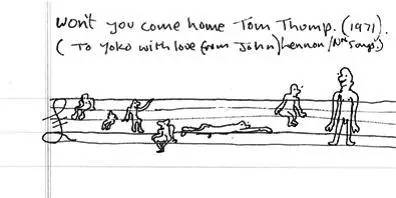 won't you come home Tom Thump. (1971).
( To Yoko with love from John) Lennon/